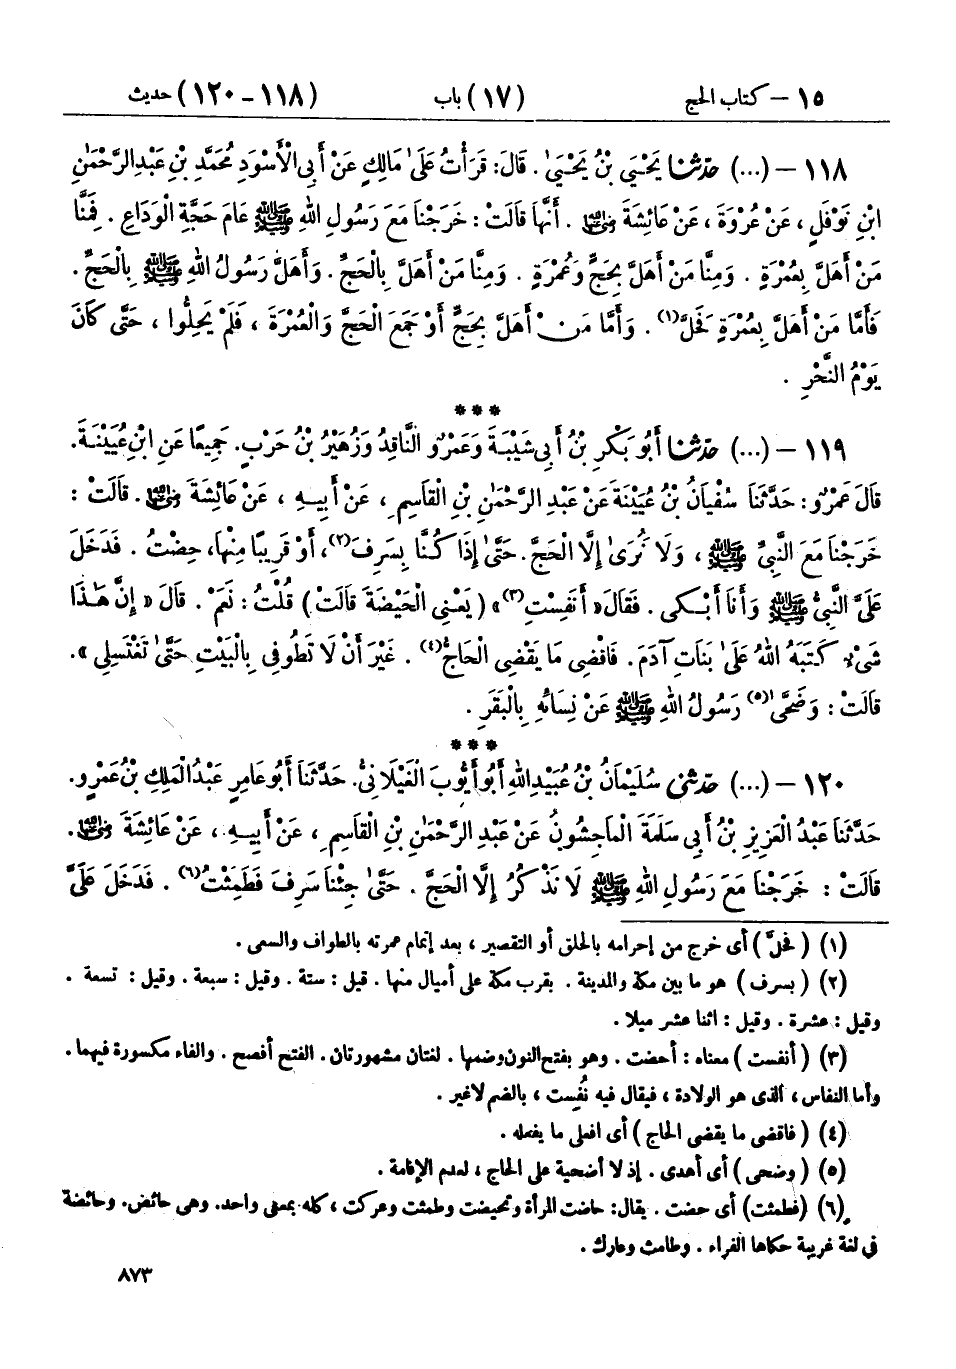 ١٥ – كتاب الحج (١٧) باب (١١٨ – ١٢٠) حديث
١١٨ – (...) حدثنا يَحْيَىٰ بْنُ يَحْيَىٰ. قَالَ: قَرَأْتُ عَلَىٰ مَالِكٍ عَنْ أَبِي الْأَسْوَدِ مُحَمَّدِ بْنِ عَبْدِ الرَّحْمَٰنِ
ابْنِ نَوْفَلٍ، عَنْ عُرْوَةَ، عَنْ عَائِشَةَ رضي الله عنها. أَنَّهَا قَالَتْ: خَرَجْنَا مَعَ رَسُولِ اللهِ ﷺ عَامَ حَجَّةِ الْوَدَاعِ. فَمِنَّا
مَنْ أَهَلَّ بِعُمْرَةٍ. وَمِنَّا مَنْ أَهَلَّ بِحَجٍّ وَعُمْرَةٍ. وَمِنَّا مَنْ أَهَلَّ بِالْحَجِّ. وَأَهَلَّ رَسُولُ اللهِ ﷺ بِالْحَجِّ.
فَأَمَّا مَنْ أَهَلَّ بِعُمْرَةٍ فَحَلَّ(١). وَأَمَّا مَنْ أَهَلَّ بِحَجٍّ أَوْ جَمَعَ الْحَجَّ وَالْعُمْرَةَ، فَلَمْ يَحِلُّوا، حَتَّى كَانَ
يَوْمُ النَّحْرِ.
***
١١٩ – (...) حدثنا أَبُو بَكْرِ بْنُ أَبِي شَيْبَةَ وَعَمْرٌو النَّاقِدُ وَزُهَيْرُ بْنُ حَرْبٍ. جَمِيعًا عَنِ ابْنِ عُيَيْنَةَ.
قَالَ عَمْرٌو: حَدَّثَنَا سُفْيَانُ بْنُ عُيَيْنَةَ عَنْ عَبْدِ الرَّحْمَٰنِ بْنِ الْقَاسِمِ، عَنْ أَبِيهِ، عَنْ عَائِشَةَ رضي الله عنها. قَالَتْ:
خَرَجْنَا مَعَ النَّبِيِّ ﷺ، وَلَا نُرَىٰ إِلَّا الْحَجَّ. حَتَّىٰ إِذَا كُنَّا بِسَرِفَ(٢)، أَوْ قَرِيبًا مِنْهَا، حِضْتُ. فَدَخَلَ
عَلَيَّ النَّبِيُّ ﷺ وَأَنَا أَبْكِي. فَقَالَ «أَنَفِسْتِ(٣)» (يَعْنِي الْحَيْضَةَ قَالَتْ) قُلْتُ: نَعَمْ. قَالَ «إِنَّ هَٰذَا
شَيْءٌ كَتَبَهُ اللهُ عَلَىٰ بَنَاتِ آدَمَ. فَاقْضِي مَا يَقْضِي الْحَاجُّ(٤). غَيْرَ أَنْ لَا تَطُوفِي بِالْبَيْتِ حَتَّىٰ تَغْتَسِلِي».
قَالَتْ: وَضَحَّىٰ(٥) رَسُولُ اللهِ ﷺ عَنْ نِسَائِهِ بِالْبَقَرِ.
***
١٢٠ – (...) حدثني سُلَيْمَانُ بْنُ عُبَيْدِ اللهِ أَبُو أَيُّوبَ الْغَيْلَانِيُّ. حَدَّثَنَا أَبُو عَامِرٍ عَبْدُ الْمَلِكِ بْنُ عَمْرٍو.
حَدَّثَنَا عَبْدُ الْعَزِيزِ بْنُ أَبِي سَلَمَةَ الْمَاجِشُونُ عَنْ عَبْدِ الرَّحْمَٰنِ بْنِ الْقَاسِمِ، عَنْ أَبِيهِ، عَنْ عَائِشَةَ رضي الله عنها.
قَالَتْ: خَرَجْنَا مَعَ رَسُولِ اللهِ ﷺ لَا نَذْكُرُ إِلَّا الْحَجَّ. حَتَّىٰ جِئْنَا سَرِفَ فَطَمِثْتُ(٦). فَدَخَلَ عَلَيَّ
(١) (فحلّ) أى خرج من إحرامه بالحلق أو التقصير، بعد إتمام عمرته بالطواف والسعى.
(٢) (بسرف) هو ما بين مكة والمدينة. بقرب مكة على أميال منها. قيل: ستة. وقيل: سبعة. وقيل: تسعة.
وقيل: عشرة. وقيل: اثنا عشر ميلا.
(٣) (أنفست) معناه: أحضت. وهو بفتح النون وضمها. لغتان مشهورتان. الفتح أفصح. والفاء مكسورة فيهما.
وأما النفاس، الذى هو الولادة، فيقال فيه نُفِست، بالضم لاغير.
(٤) (فاقضى ما يقضى الحاج) أى افعلى ما يفعله.
(٥) (وضحى) أى أهدى. إذ لا أضحية على الحاج، لعدم الإقامة.
(٦) (فطمئت) أى حضت. يقال: حاضت المرأة وتحيضت وطمثت وعركت، كله بمعنى واحد. وهى حائض. وحائضة
فى لغة غريبة حكاها الفراء. وطامث وعارك.
٨٧٣